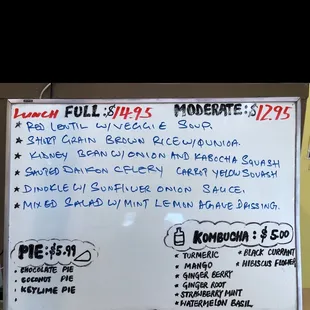 LUNCH FULL:$14.95 MODERATE:$12.95
* RED LENTIL W/ VEGGIE SOUP.
* SHORT GRAIN BROWN RICE W/ QUNIOA.
* KIDNEY BEAN W/ ONION AND KABOCHA SQUASH
* SAUTED DAIKON CELERY CARROT YELOW SQUASH
* DINOKLE W/ SUNFLIUER ONION SAUCE.
* MIXED SALAD W/ MINT LEMON AGAVE DRESSING.
PIE:$5.99
• CHOCOLATE PIE
• COCONUT PIE
• KEYLIME PIE
KOMBUCHA: $5.00
* TURMERIC
* MANGO
* GINGER BERRY
* GINGER ROOT
* STRAWBERRY MINT
* WATERMELON BASIL
* BLACK CURRANT
* HIBISCUS FLOWER